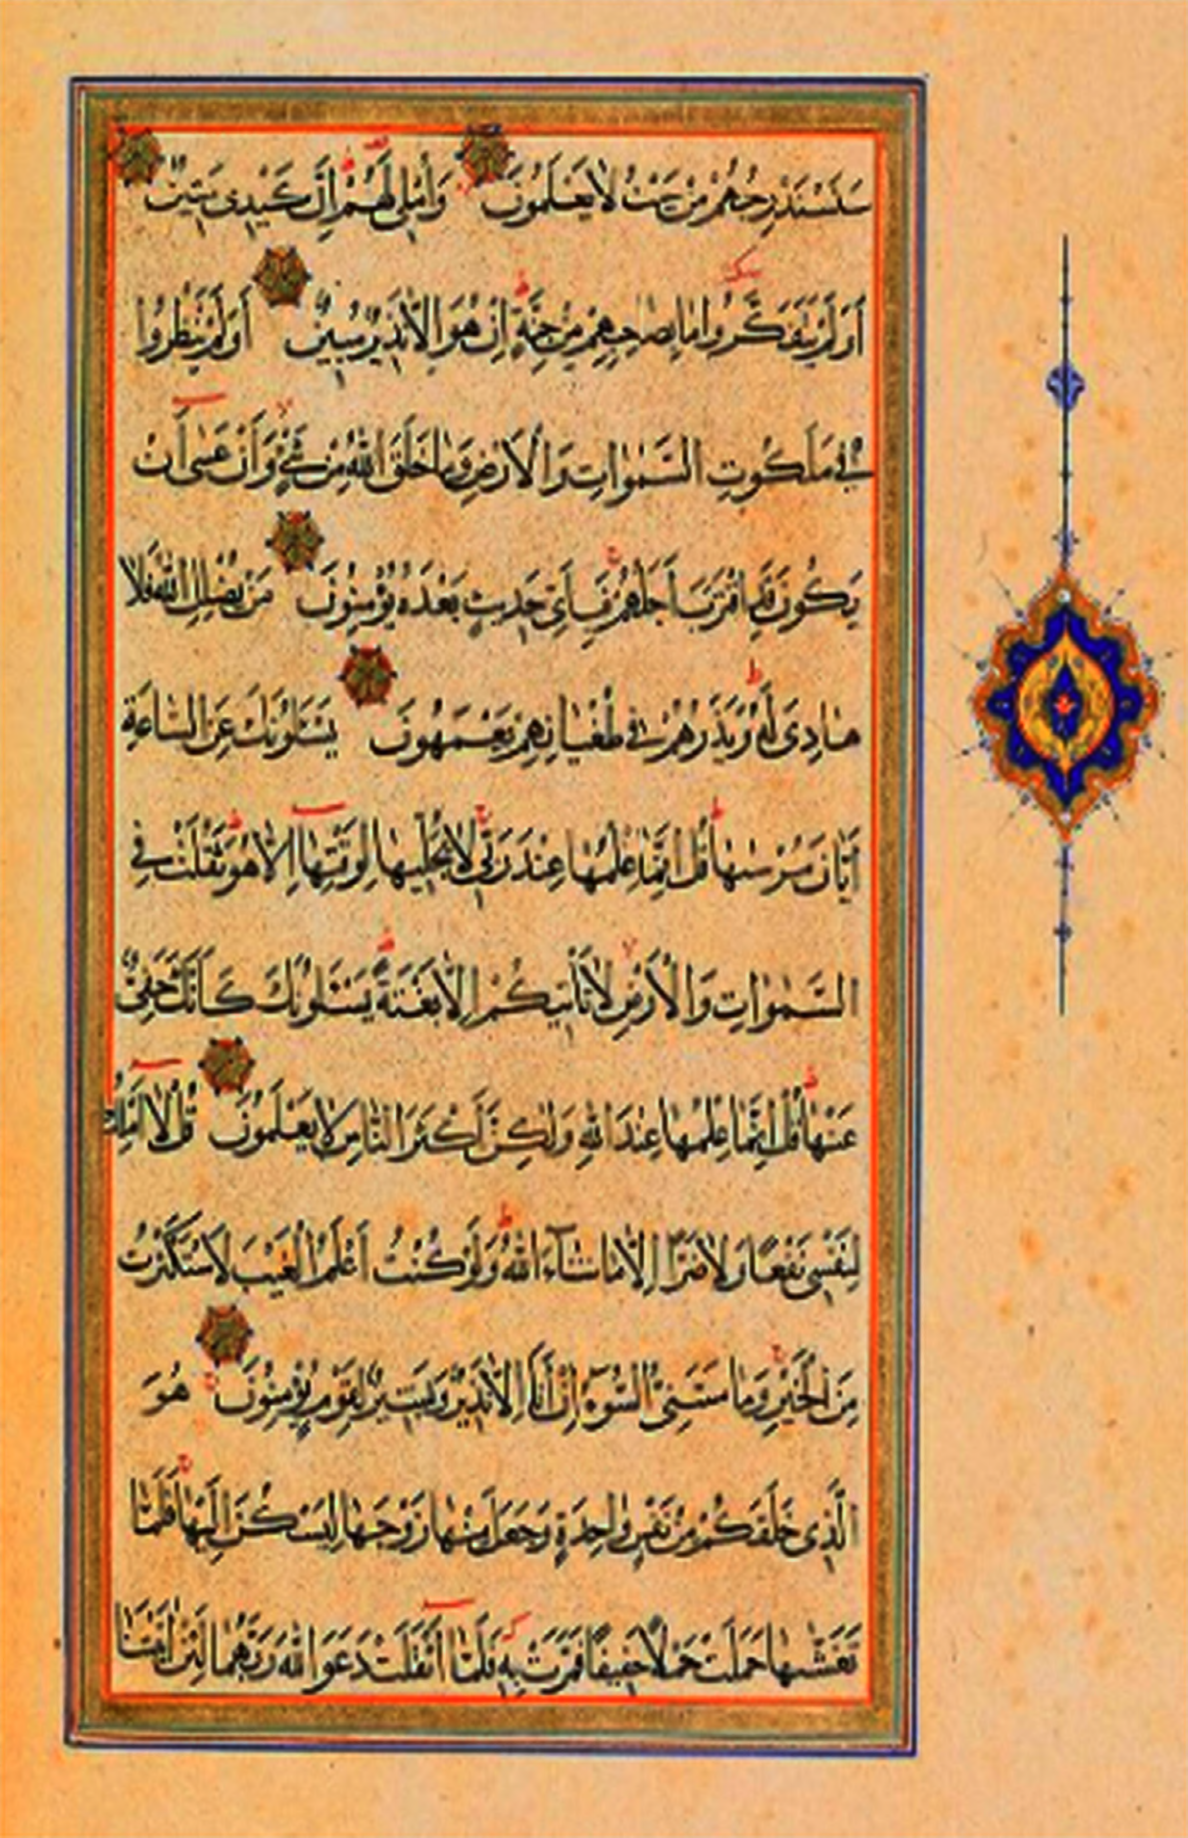 سَنَسْتَدْرِجُهُمْ مِنْ حَيْثُ لَا يَعْلَمُونَ وَأُمْلِي لَهُمْ إِنَّ كَيْدِي مَتِينٌ
أَوَلَمْ يَتَفَكَّرُوا مَا بِصَاحِبِهِمْ مِنْ جِنَّةٍ إِنْ هُوَ إِلَّا نَذِيرٌ مُبِينٌ أَوَلَمْ يَنْظُرُوا
فِي مَلَكُوتِ السَّمٰوَاتِ وَالْأَرْضِ وَمَا خَلَقَ اللهُ مِنْ شَيْءٍ وَأَنْ عَسٰى أَنْ
يَكُونَ قَدِ اقْتَرَبَ أَجَلُهُمْ فَبِأَيِّ حَدِيثٍ بَعْدَهُ يُؤْمِنُونَ مَنْ يُضْلِلِ اللهُ فَلَا
هَادِيَ لَهُ وَيَذَرُهُمْ فِي طُغْيَانِهِمْ يَعْمَهُونَ يَسْـَٔلُونَكَ عَنِ السَّاعَةِ
أَيَّانَ مُرْسٰىهَا قُلْ إِنَّمَا عِلْمُهَا عِنْدَ رَبِّي لَا يُجَلِّيهَا لِوَقْتِهَا إِلَّا هُوَ ثَقُلَتْ فِي
السَّمٰوَاتِ وَالْأَرْضِ لَا تَأْتِيكُمْ إِلَّا بَغْتَةً يَسْـَٔلُونَكَ كَأَنَّكَ حَفِيٌّ
عَنْهَا قُلْ إِنَّمَا عِلْمُهَا عِنْدَ اللهِ وَلٰكِنَّ أَكْثَرَ النَّاسِ لَا يَعْلَمُونَ قُلْ لَا أَمْلِكُ
لِنَفْسِي نَفْعًا وَلَا ضَرًّا إِلَّا مَا شَاءَ اللهُ وَلَوْ كُنْتُ أَعْلَمُ الْغَيْبَ لَاسْتَكْثَرْتُ
مِنَ الْخَيْرِ وَمَا مَسَّنِيَ السُّوءُ إِنْ أَنَا إِلَّا نَذِيرٌ وَبَشِيرٌ لِقَوْمٍ يُؤْمِنُونَ هُوَ
الَّذِي خَلَقَكُمْ مِنْ نَفْسٍ وَاحِدَةٍ وَجَعَلَ مِنْهَا زَوْجَهَا لِيَسْكُنَ إِلَيْهَا فَلَمَّا
تَغَشّٰىهَا حَمَلَتْ حَمْلًا خَفِيفًا فَمَرَّتْ بِهِ فَلَمَّا أَثْقَلَتْ دَعَوَا اللهَ رَبَّهُمَا لَئِنْ آتَيْتَنَا